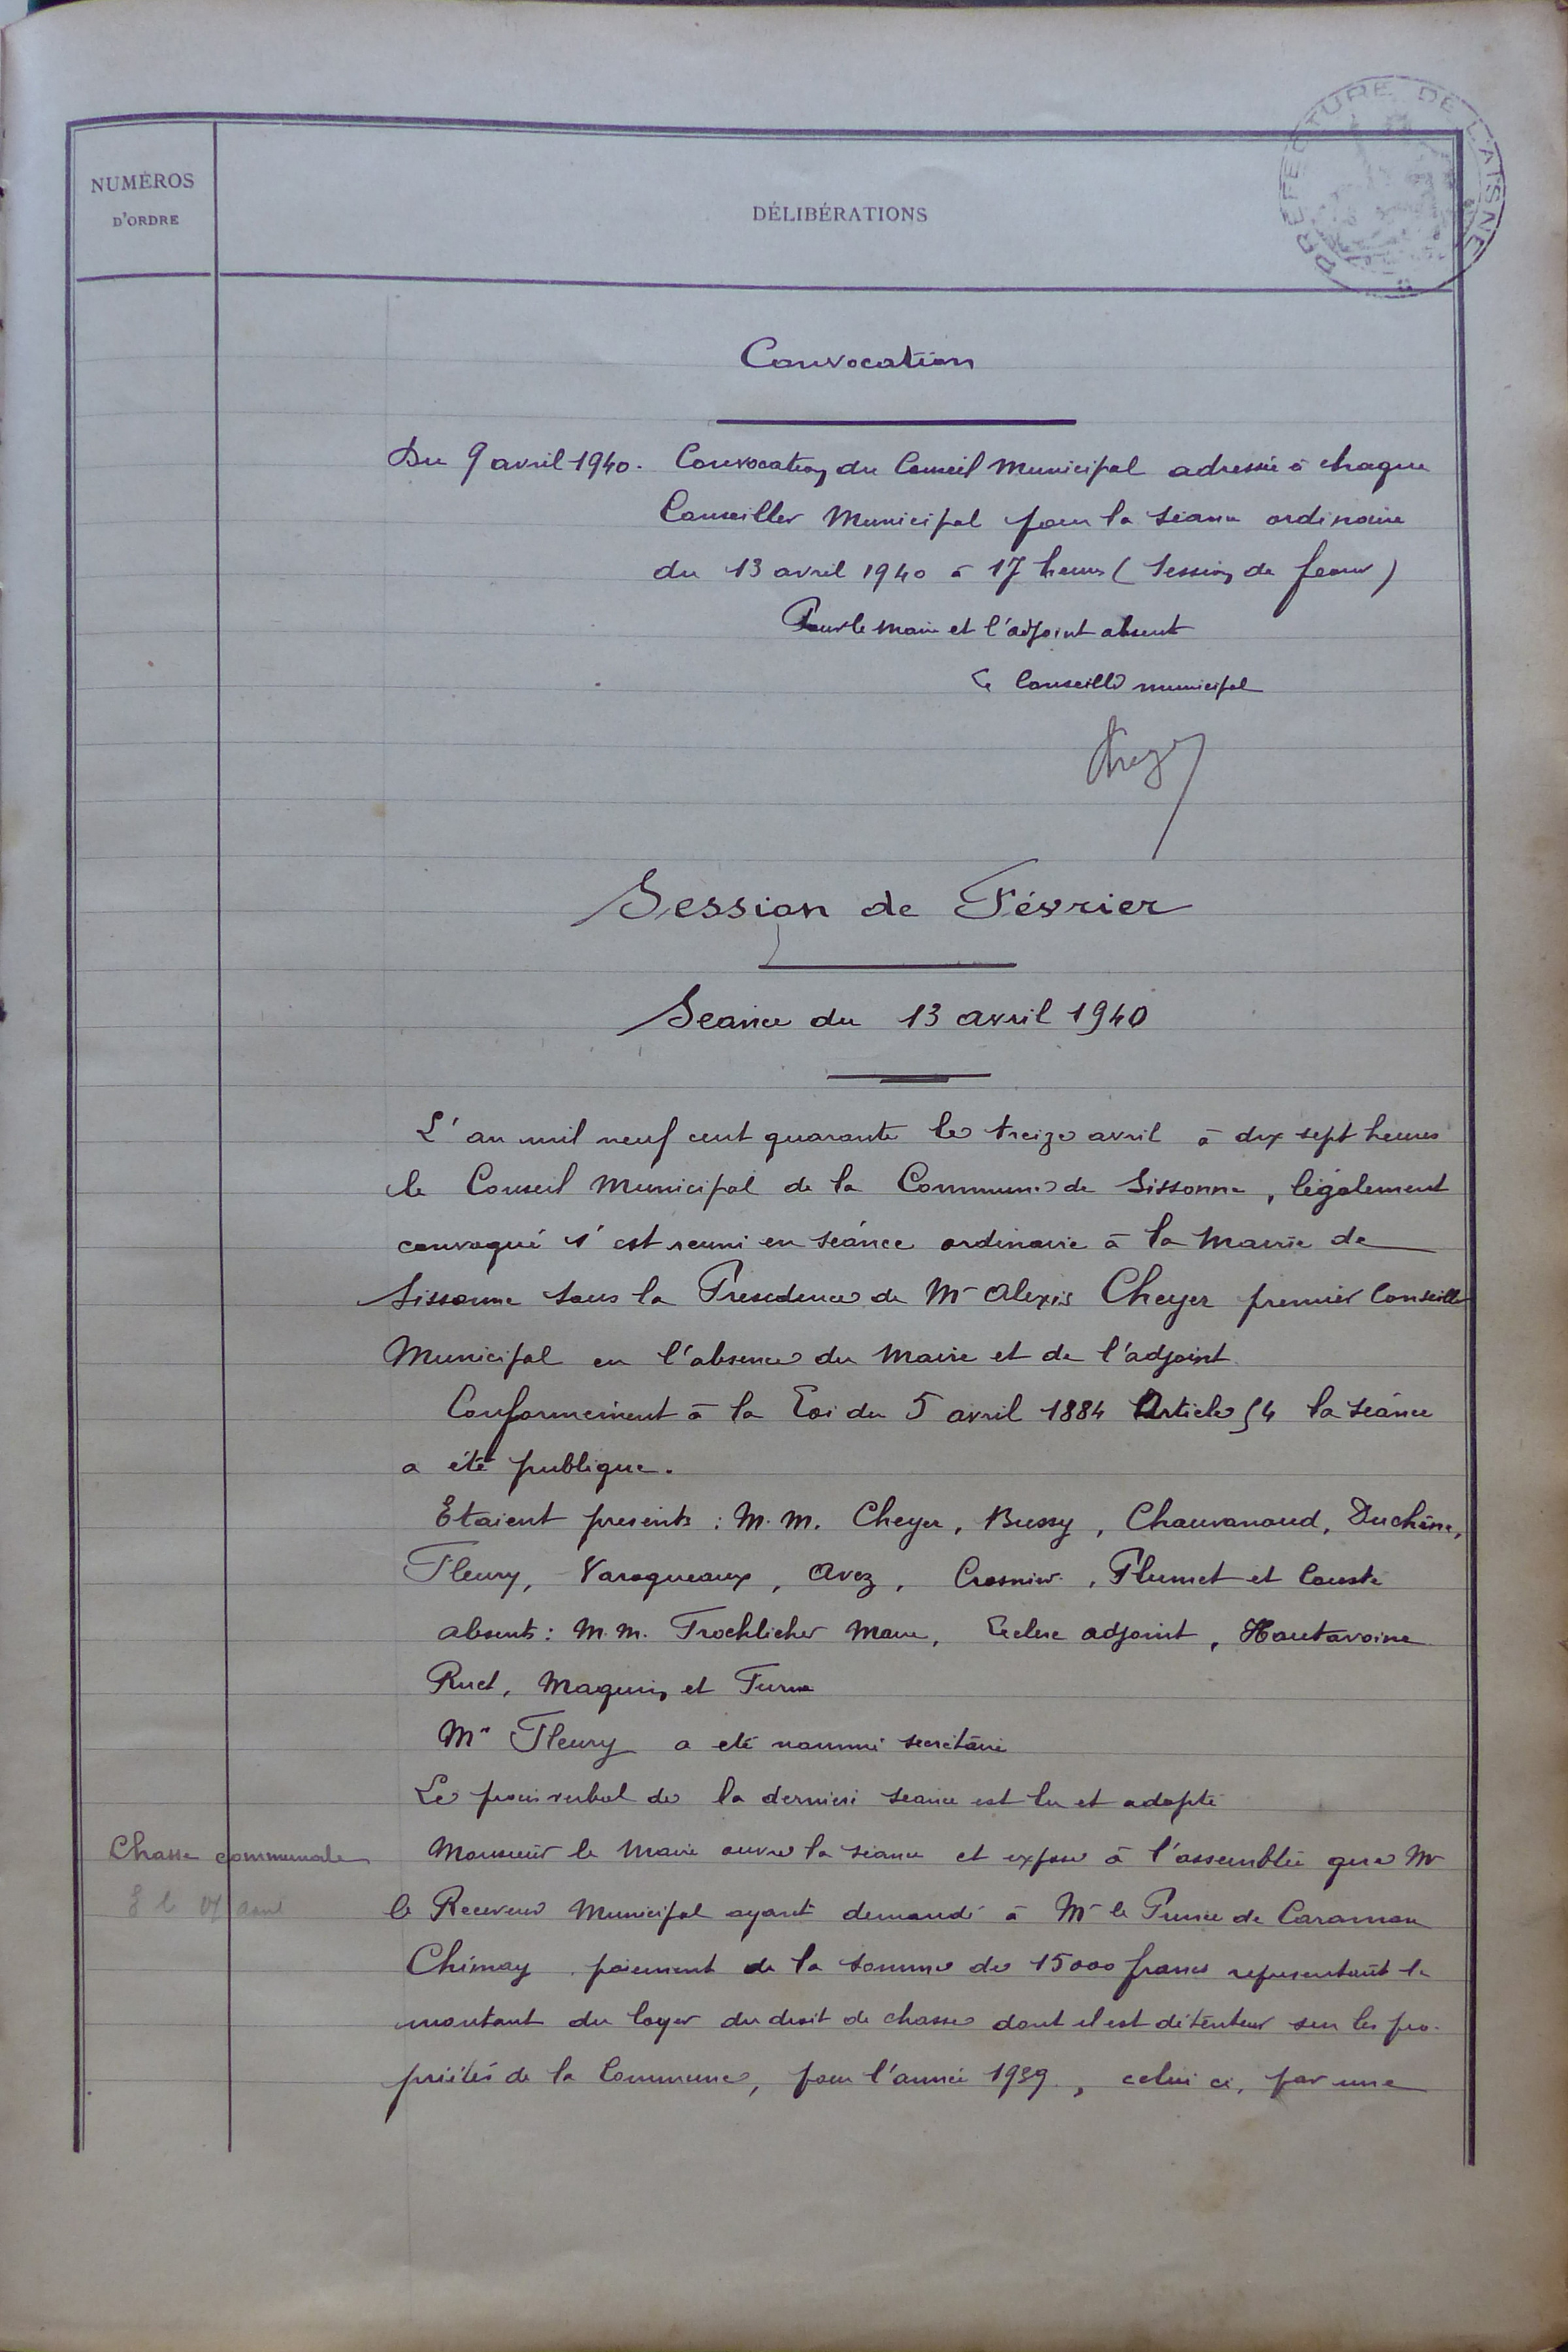 PREFECTURE DE L'AISNE
NUMÉROS
D'ORDRE
DÉLIBÉRATIONS
Convocation
Du 9 avril 1940. Convocation du Conseil Municipal adressée à chaque
Conseiller Municipal pour la séance ordinaire
du 13 avril 1940 à 17 heures (Session de
Pour le Maire et l'adjoint absent
Le Conseiller municipal
Session de Février
Séance du 13 avril 1940
L'an mil neuf cent quarante le treize avril à dix sept heures
le Conseil Municipal de la Commune de Sissonne, légalement
convoqué s'est reuni en séance ordinaire à la Mairie de
Sissonne sous la Presidence de Mr Alexis Cheyer premier Conseiller
Municipal en l'absence du Maire et de l'adjoint.
Conformément à la Loi du 5 avril 1884 Article 54 la séance
a été publique.
Etaient présents : M.M. Cheyer, Bussy, Chauvanaud, Duchêne,
Fleury, Varoqueaux, Avez, Crosnier, Plumet et Cousté
absents : M.M. Froehlicher Maire, Leclerc adjoint, Hautavoine
Ruet, Maquin et
Mr Fleury a eté nommé secrétaire
Le procès verbal de la dernière séance est lu et adopté
Chasse communale
Monsieur le Maire ouvre la séance et expose à l'assemblée que Mr
le Receveur Municipal ayant demandé à Mr le Prince de Caraman
Chimay paiement de la somme de 15000 francs représentant le
montant du loyer du droit de chasse dont il est détenteur sur les pro-
priétés de la Commune, pour l'année 1939, celui ci, par une